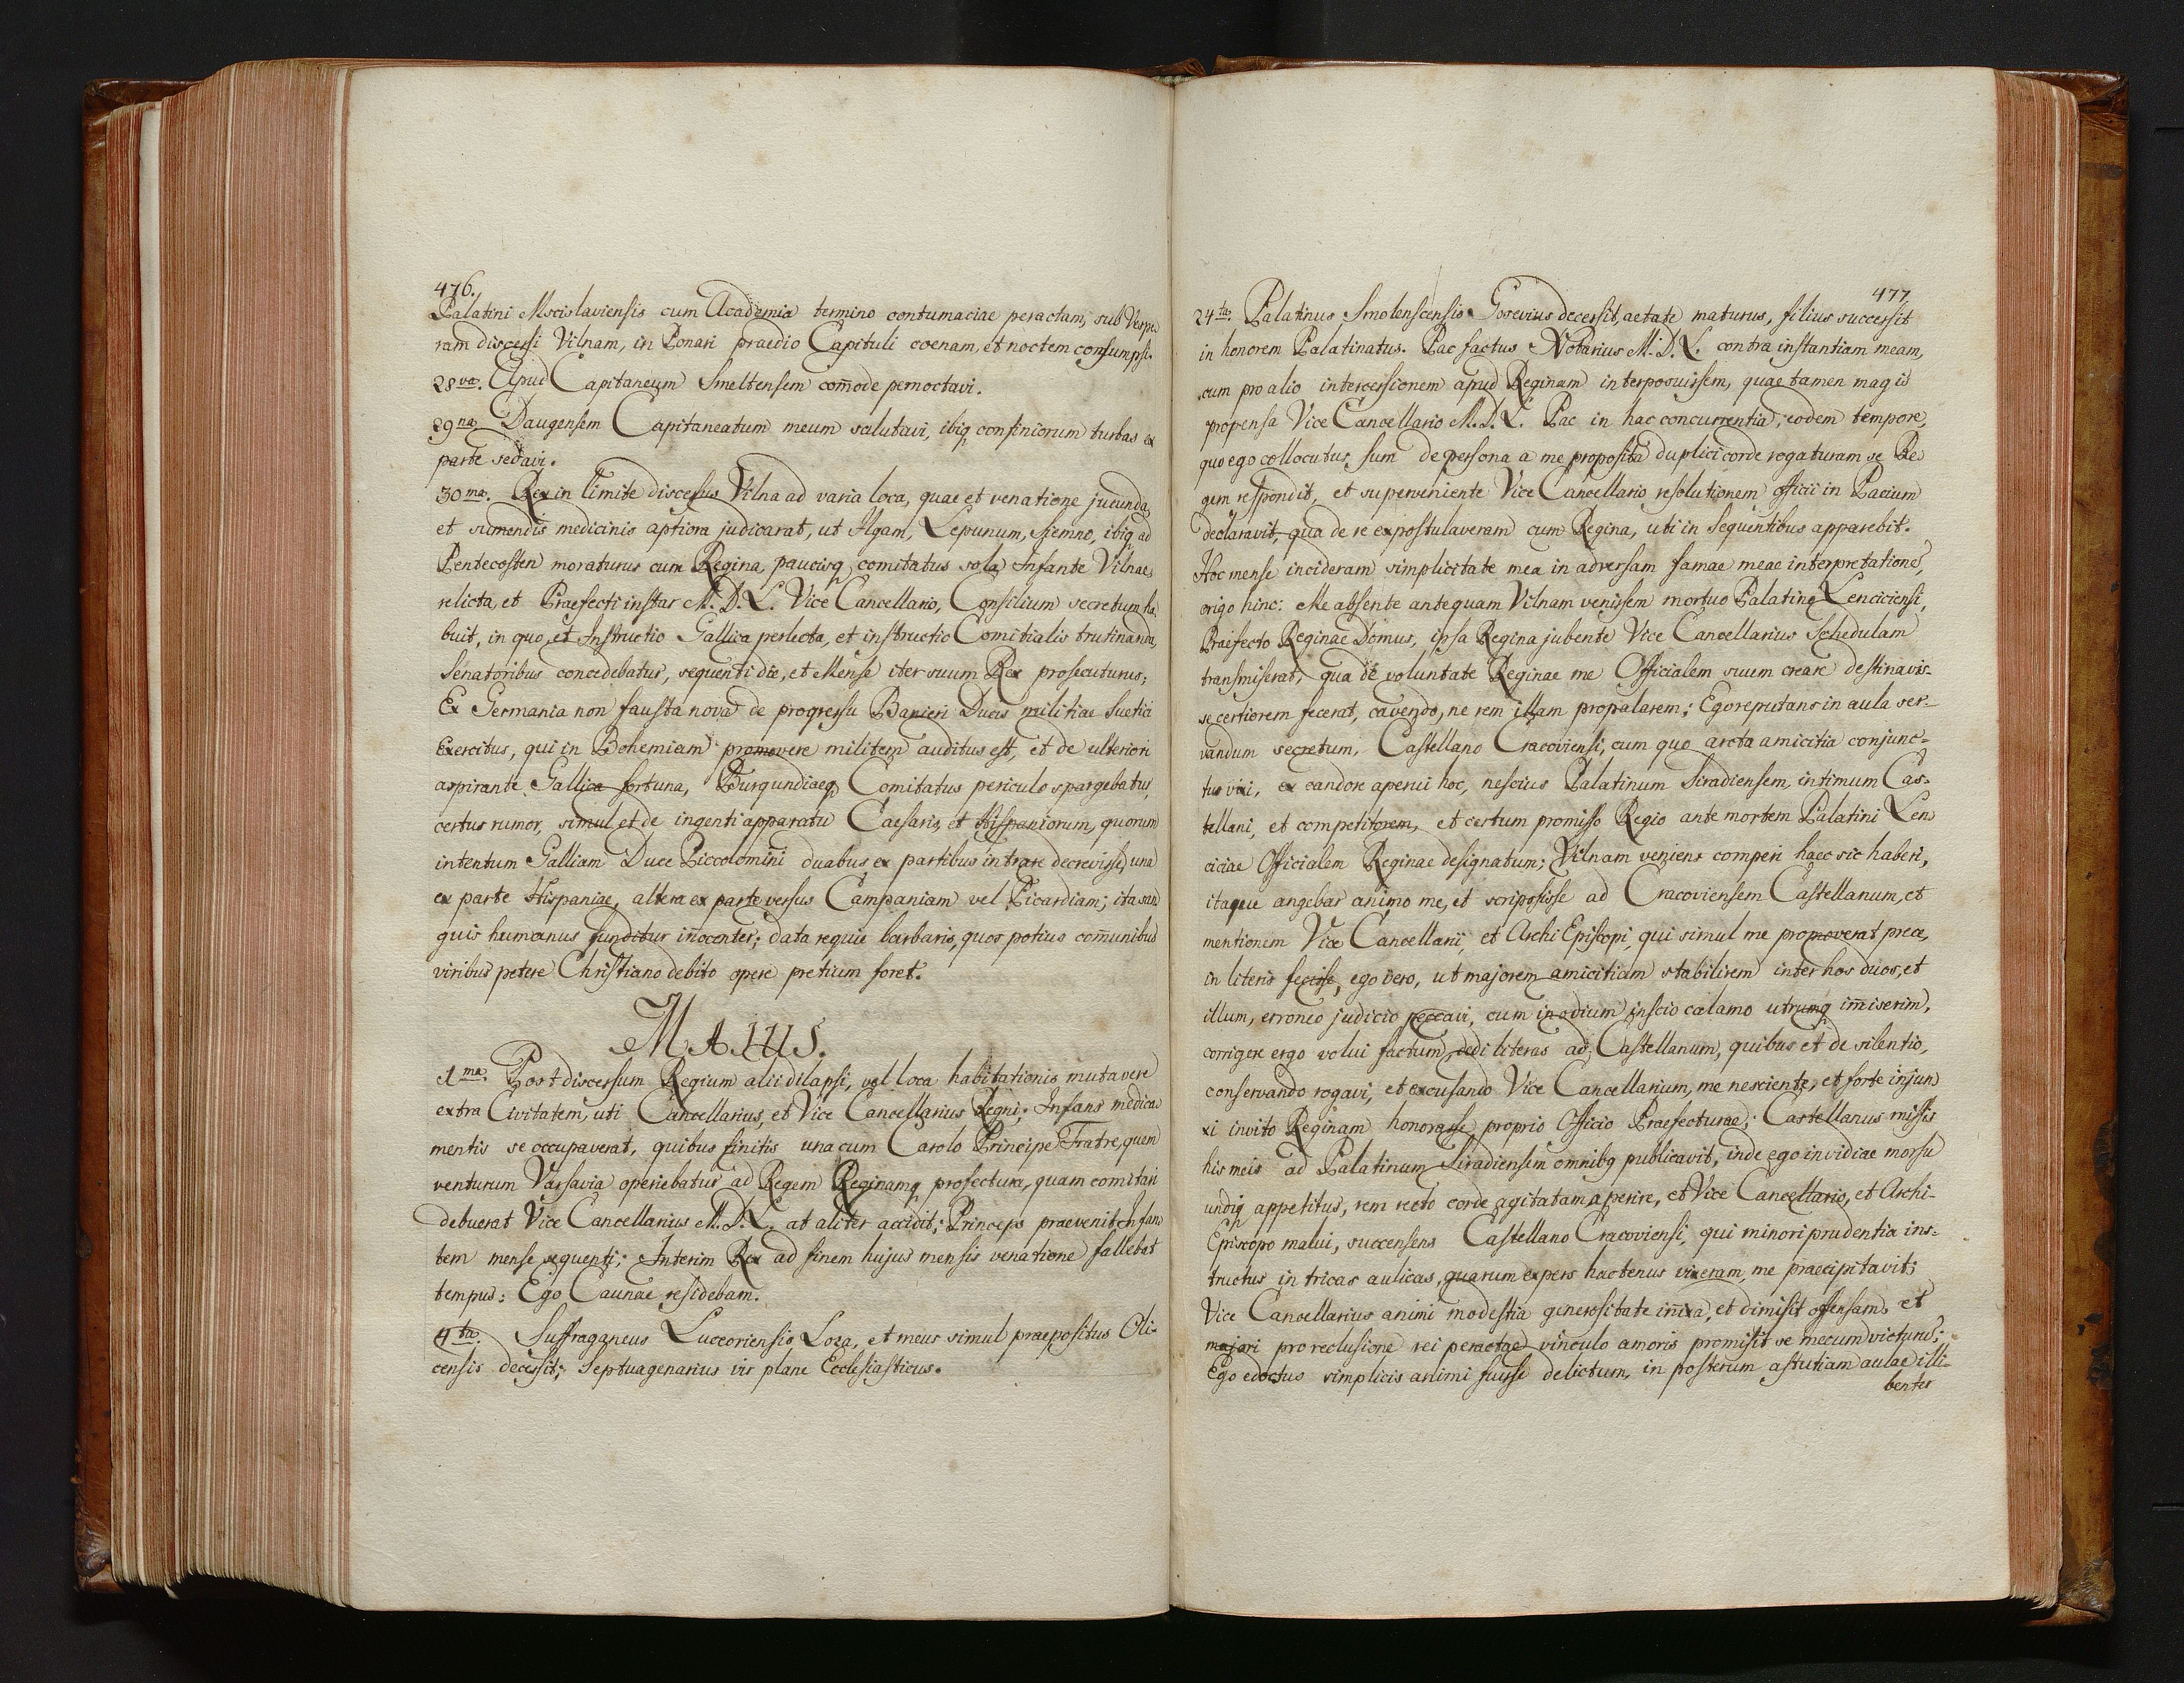 476.
Palatini Mscislaviensis cum Academia termino contumaciae peractam, sub Vespe
ram discessi Vilnam, in Ponari praedio Capituli coenam, et noctem consumpsi.
28va. Apud Capitaneum Smeltensem com̄ode pernoctavi.
29na. Daugensem Capitaneatum meum salutavi, ibiq confiniorum turbas ex
parte sedavi.
30ma. Rex in limite discessus Vilna ad varia loca, quae et venatione jucunda,
et sumendis medicinis aptiora judicarat, ut Algam, Lepunum, Siemno, ibiq ad
Pentecosten moraturus cum Regina, paucisq comitatus sola Infante Vilnae
relicta, et Praefecti instar M. D. L. Vice Cancellario, Consilium secretum ha
buit, in quo, et Instructio Gallica perlecta, et instructio Comitialis trutinanda,
Senatoribus concedebatur, sequenti die, et Mense iter suum Rex prosecuturus;
Ex Germania non fausta nova de progressu Banieri Ducis militiae Sueticі
Exercitus, qui in Bohemiam promovere militem auditus est, et de ulteriori
aspirante Gallica fortuna, Burgundiaeq Comitatus periculo spargebatur,
certus rumor, simul et de ingenti apparatu Caesaris, et Hispaniorum, quorum
intentum Galliam Duce Piccolomini duabus ex partibus intrare decrevisse, una
ex parte Hispaniae, altera ex parte versus Campaniam vel Picardiam; ita san
guis humanus funditur in̄ocenter; data requie barbaris, quos potius com̄unibus
viribus petere Christiano debito opere pretium foret.
MAIUS.
1ma. Post discessum Regium alii dilapsi, vel loca habitationis mutavere
extra Civitatem, uti Cancellarius, et Vice Cancellarius Regni; Infans medica
mentis se occupaverat, quibus finitis una cum Carolo Principe Fratre, quem
venturum Varsavia operiebatur ad Regem Reginamq profectura, quam comitari
debuerat Vice Cancellarius M. D. L. at aliter accidit; Princeps praevenit Infan
tem mense sequenti; Interim Rex ad finem hujus mensis venatione fallebat
tempus: Ego Caunae residebam.
4ta. Suffraganeus Luceoriensis Loza, et meus simul praepositus Oli-
censis decessit; Septuagenarius vir plane Ecclesiasticus.
477
24ta. Palatinus Smolenscensis Gosevius decessit, aetate maturus, filius successit
in honorem Palatinatus. Pac factus Notarius M. D. L. contra instantiam meam,
cum pro alio intercessionem apud Reginam interposuissem, quae tamen magis
propensa Vice Cancellario M. D. L. Pac in hac concurrentia, eodem tempore,
quo ego collocutus sum de persona a me proposita duplici corde rogaturam se Re
gem respondit, et superveniente Vice Cancellario resolutionem officii in Pacium
declaravit, qua de re expostulaveram cum Regina, uti in sequentibus apparebit.
Hoc mense incideram simplicitate mea in adversam famae meae interpretatione,
origo hinc: Me absente antequam Vilnam venissem mortuo Palatino Lenciciensi,
Praefecto Reginae Domus, ipsa Regina jubente Vice Cancellarius Schedulam
transmiserat, qua de voluntate Reginae me Officialem suum creare destinavis-
se certiorem fecerat, cavendo, ne rem illam propalarem; Ego reputans in aula ser-
vandum secretum, Castellano Cracoviensi, cum quo arcta amicitia conjunc-
tus vixi, ex candore aperui hoc, nescius Palatinum Siradiensem, intimum Cas-
tellani, et competitorem, et certum promisso Regio ante mortem Palatini Len
ciciae Officialem Reginae designatum; Vilnam veniens comperi haec sic haberi,
itaque angebar animo me, et scripsisse ad Cracoviensem Castellanum, et
mentionem Vice Cancellarii, et Archi Episcopi, qui simul me promoverat prece,
in literis fecisse, ego vero, ut majorem amicitiam stabilirem inter hos duos, et
illum, erroneo judicio peccavi, cum in odium inscio calamo utrumq im̄iserim,
corrigere ergo volui factum, dedi literas ad Castellanum, quibus et de silentio,
conservando rogavi, et excusando Vice Cancellarium, me nesciente, et forte injun
xi invito Reginam honorasse proprio Officio Praefecturae; Castellanus missis
his meis ad Palatinum Siradiensem omnibq publicavit, inde ego invidiae morsu
undiq appetitus, rem recto corde agitatam aperire, et Vice Cancellario, et Archi-
Episcopo malui, succensens Castellano Cracoviensi, qui minori prudentia ins-
tructus in tricas aulicas, quarum expers hactenus vixeram, me praecipitavit;
Vice Cancellarius animi modestia generositate in̄ixa, et dimisit offensam, et
majori pro reclusione rei peractae vinculo amoris promisit se mecum victurus;
Ego edoctus simplicis animi fuisse delictum, in posterum astutiam aulae illi-
benter